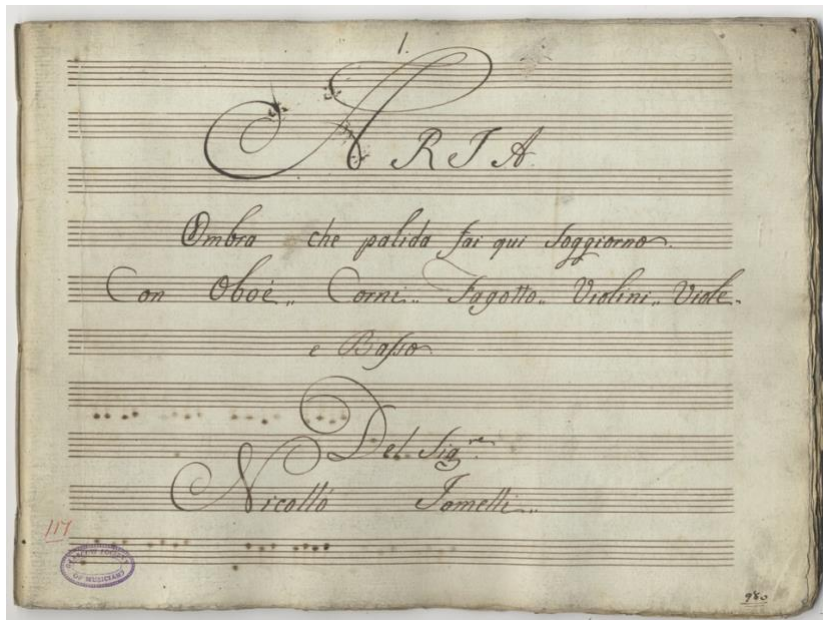 1.
ARIA
Ombra che palida fai qui soggiorno.
Con Oboè,, Corni,, Fagotto,, Violini,, Viole
e Basso
Del Sig.re
Nicollò Jomelli,,
117
OF MUSICIANS
980